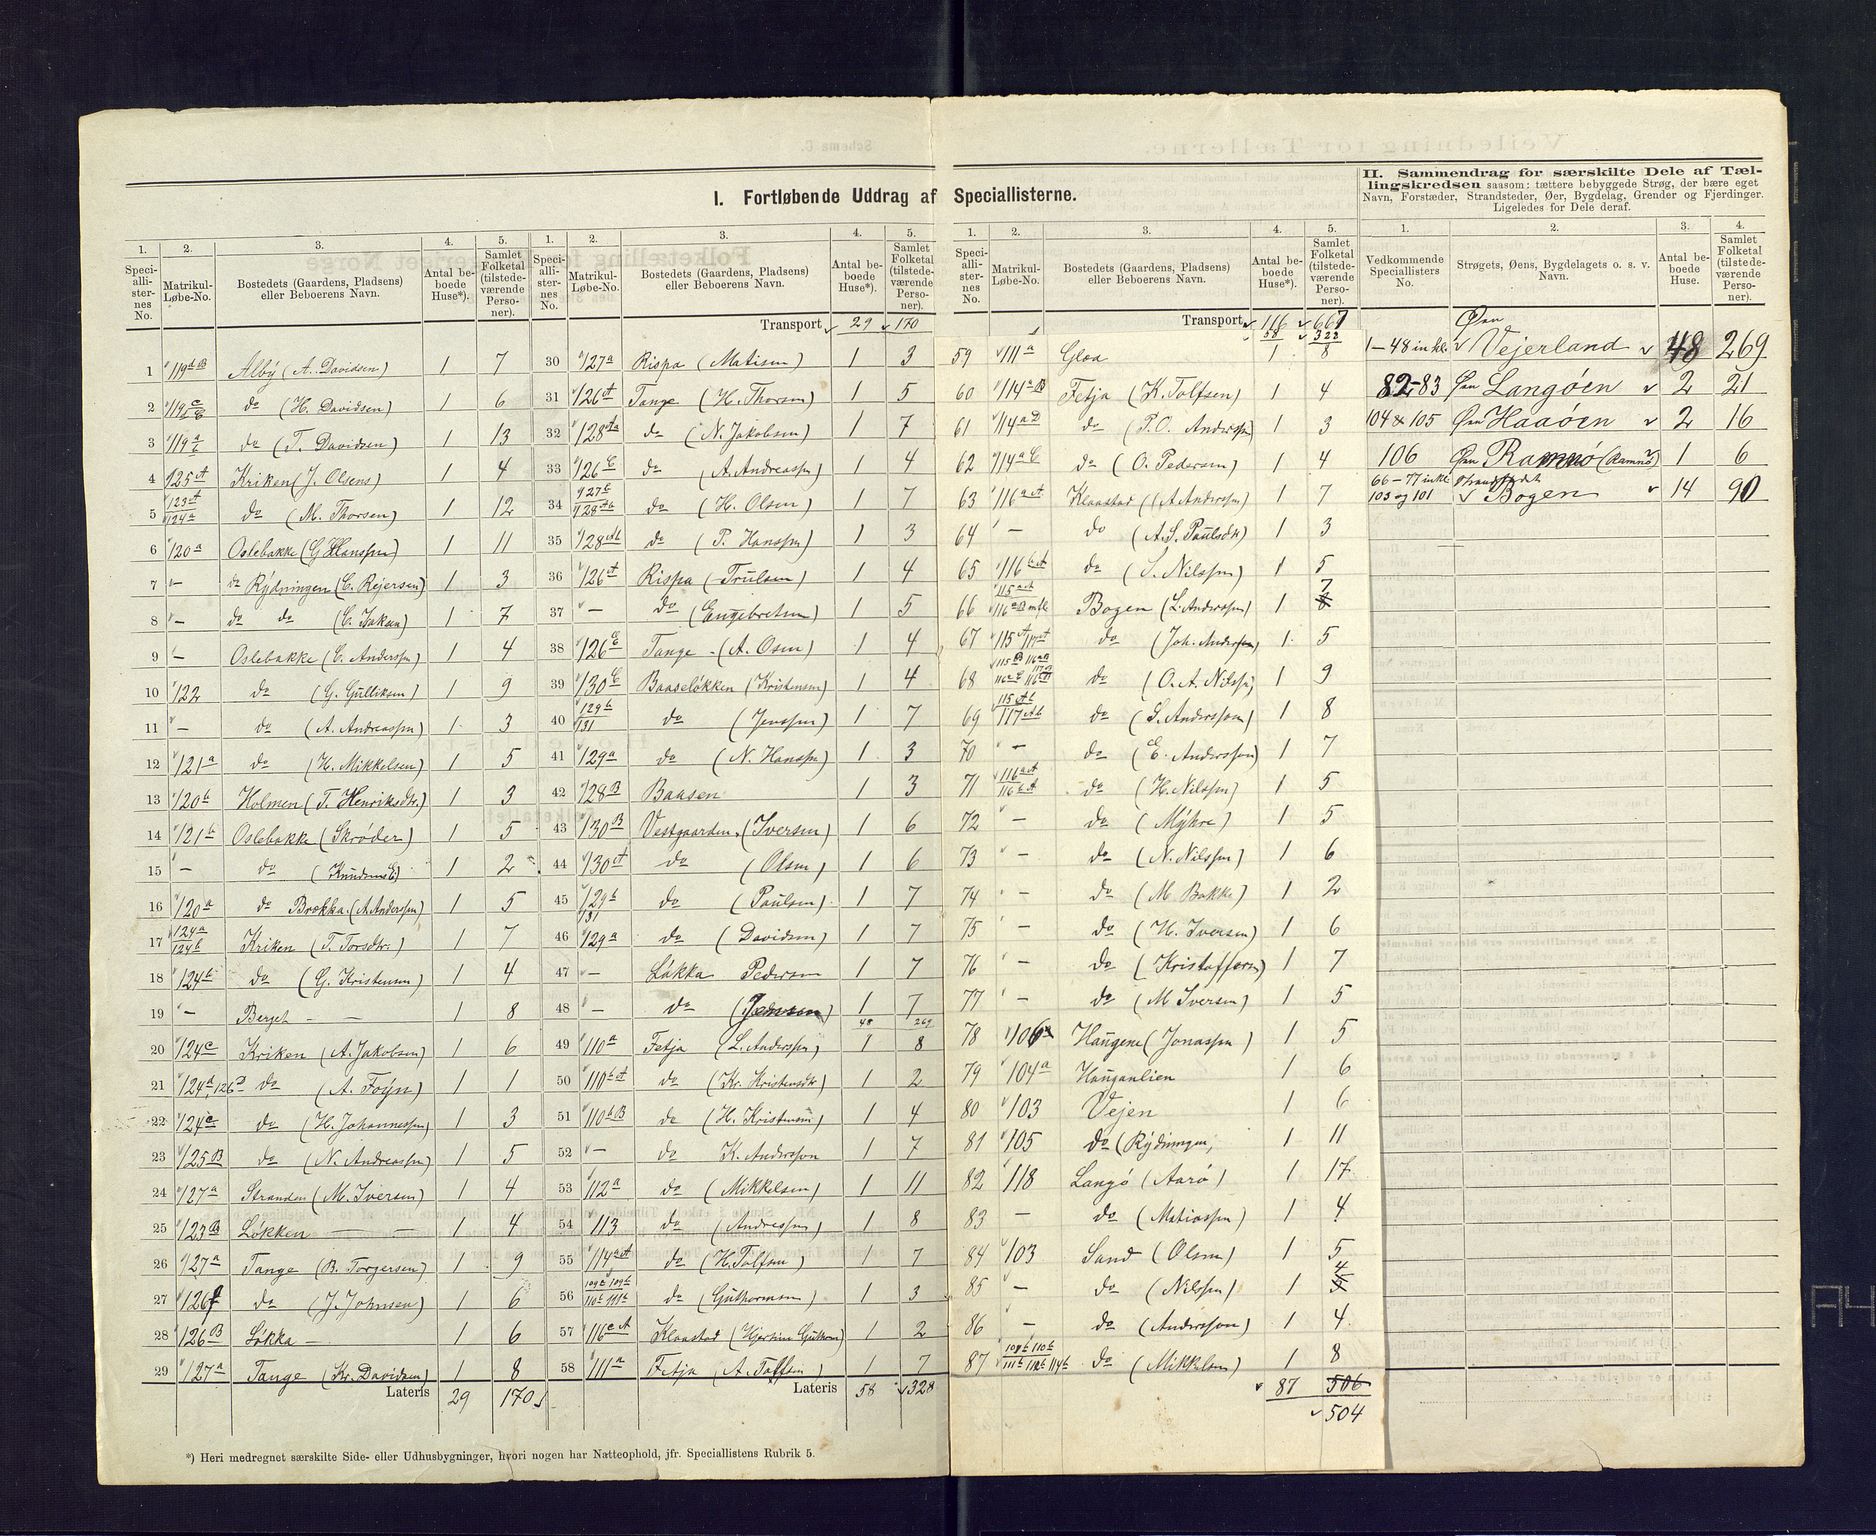 I. Fortløbende Uddrag af Speciallisterne.
II. Sammendrag for særskilte Dele af Tæl-
lingskredsen saasom: tættere bebyggede Strøg, der bære eget
Navn, Forstæder, Strandsteder, Øer, Bygdelag, Grender og Fjerdinger.
Ligeledes for Dele deraf.
1. Speciallisternes No. 2. Matrikul-Løbe-No. 3. Bostedets (Gaardens, Pladsens) eller Beboerens Navn. 4. Antal beboede Huse*). 5. Samlet Folketal (tilstedeværende Personer).
1 119 b B Alby (A. Davidsen) 1 7
2 do (H. Davidsen) 1 6
3 do (T. Davidsen) 1 13
4 125 A Kriken (J. Olsens) 1 4
5 123 A 124 a do (M. Thorsen) 1 12
6 120 a Oslebakke (G Hanssen) 1 11
7 — do Rydningen (C. Rejersen) 1 3
8 — do do (C. Isaksen) 1 7
9 — Oslebakke (C. Anderssen) 1 4
10 122 do (G. Gulliksen) 1 9
11 — do (A. Andreassen) 1 3
12 121 a do (H. Mikkelsen) 1 5
13 120 b Holmen (T. Henriksdtr.) 1 3
14 121 b Oslebakke (Skrøder) 1 5
15 — do 1 2
16 120 a do Brækka (A. Anderssen) 1 5
17 124 a 124 b Kriken (T. Torsdtr.) 1 7
18 124 b do (G. Kristensen) 1 4
19 — Berget — — 1 8
20 124 c Kriken (A. Jakobsen) 1 6
21 124 d, 126 D do (A. Foyn) 1 1
22 124 e do (H. Johannessen) 1 3
23 125 B do (N. Andreassen) 1 5
24 127 a Stranden (M. Iversen) 1 4
25 123 B Løkken — — 1 4
26 127 a Tange (B. Torgersen) 1 9
27 126 do (J. Johnsen) 1 6
28 126 B Løkka — 1 6
29 127 a Tange (Kr. Davidsen) 1 8
Lateris 29 170
Transport 29 170
30 127 a Rispa (Matisen) 1 3
31 126 A Tange (H. Thorsen) 1 5
32 128 Aa do (N. Jakobsen) 1 7
33 126 C do (A. Andreassen) 1 4
34 127 b 128 Aa do (H. Olsen) 1 7
35 128 Ab do (P. Hanssen) 1 3
36 126 A Rispa (Trulsen) 1 4
37 — do (Engebretsen) 1 5
38 126 E Tange (A. Osen) 1 4
39 130 C Baaseløkken (Kristensen) 1 4
40 129 b 131 do (Jenssen) 1 7
41 129 a do (N. Hanssen) 1 3
42 128 B Baasen 1 3
43 130 B Vestgaarden (Iversen) 1 6
44 130 A do (Olsen) 1 6
45 129 b 131 do (Paulsen) 1 7
46 129 a do (Davidsen) 1 7
47 — Løkka Pedersen 1 7
48 — do 1 7
48 269
49 110 a Fetja (L. Anderssen) 1 8
50 110 b A do (Kr. Kristensdtr) 1 2
51 110 b B do (H. Kristensen) 1 4
52 — do K. Andersson 1 7
53 112 a do (Mikkelsen) 1 11
54 113 do (Andreassen) 1 8
55 114 a A do (H. Tolfsen) 1 7
56 do (Guthormsen) 1 3
57 116 c A Klaastad (Hjertine Guthorm) 1 2
58 111 a Fetja (A. Tolfsen) 1 7
Lateris 58 328
Transport 116 667
58 322
59 111 a Gloa 1 8
60 114 a B Fetja (K. Tolfsen) 1 4
61 114 a D do (P.O. Anderssen) 1 3
62 114 a C do (O. Pedersen) 1 4
63 116 a A Klaastad (A Anderssen) 1 7
64 — do (A.S. Paulsdtr) 1 3
65 116 b A do (S. Nilssen) 1 5
66 115 a A 116 a B mfl Bogen (L. Anderssen) 1 7
67 115 A 117 A do (Joh. Anderssen) 1 5
68 do (O.A. Nilssen) 1 9
69 115 Ab 117 Ab do (S. Andersson) 1 8
70 — do (E. Andersson) 1 7
71 116 a A 116 b A do (H. Nilssen) 1 5
72 — do (Myhre) 1 5
73 — do (N. Nilssen) 1 6
74 — do (M Bakke) 1 2
75 do (H. Iversen) 1 6
76 — do (Kristoffers) 1 7
77 — do (M Iversen) 1 5
78 106 Haugene (Jonassen) 1 5
79 104 a Hauganlien 1 6
80 103 Vejen 1 6
81 105 do (Rydningen, 1 11
82 118 Langø (Aarø) 1 17
83 — do (Matiassen) 1 4
84 103 Sand (Olsen) 1 5
85 — do (Nilssen) 1 4
86 — do (Andersson) 1 4
87 do (Mikkelsen) 1 8
87 506
504
1. Vedkommende Speciallisters No. 2. Strøgets, Øens, Bygdelagets o. s. v. Navn. 3. Antal beboede Huse. 4. Samlet Folketal (tilstedeværende Personer).
1–48 inkl. Øen Vejerland 48 269
82–83 Øen Langøen 2 21
104 & 105 Øen Haaøen 2 16
106 Øen Ramnø (Ramnø) 1 6
66–77 inkl. 103 og 101 Strandstedet Bogen 14 90
*) Heri medregnet særskilte Side- eller Udhusbygninger, hvori nogen har Natteophold, jfr. Speciallistens Rubrik 5.